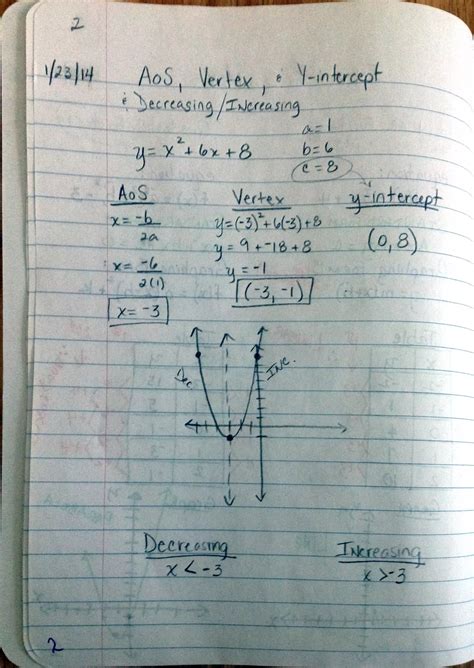 2
1/23/14 AoS, Vertex, & Y-intercept
& Decreasing/Increasing
y = x² + 6x + 8
a = 1
b = 6
c = 8
AoS Vertex y-intercept
x = -b/2a
y = (-3)² + 6(-3) + 8
(0, 8)
y = 9 + -18 + 8
x = -6/2(1)
y = -1
x = -3
(-3, -1)
Dec.
Inc.
Decreasing Increasing
x < -3 x > -3
2